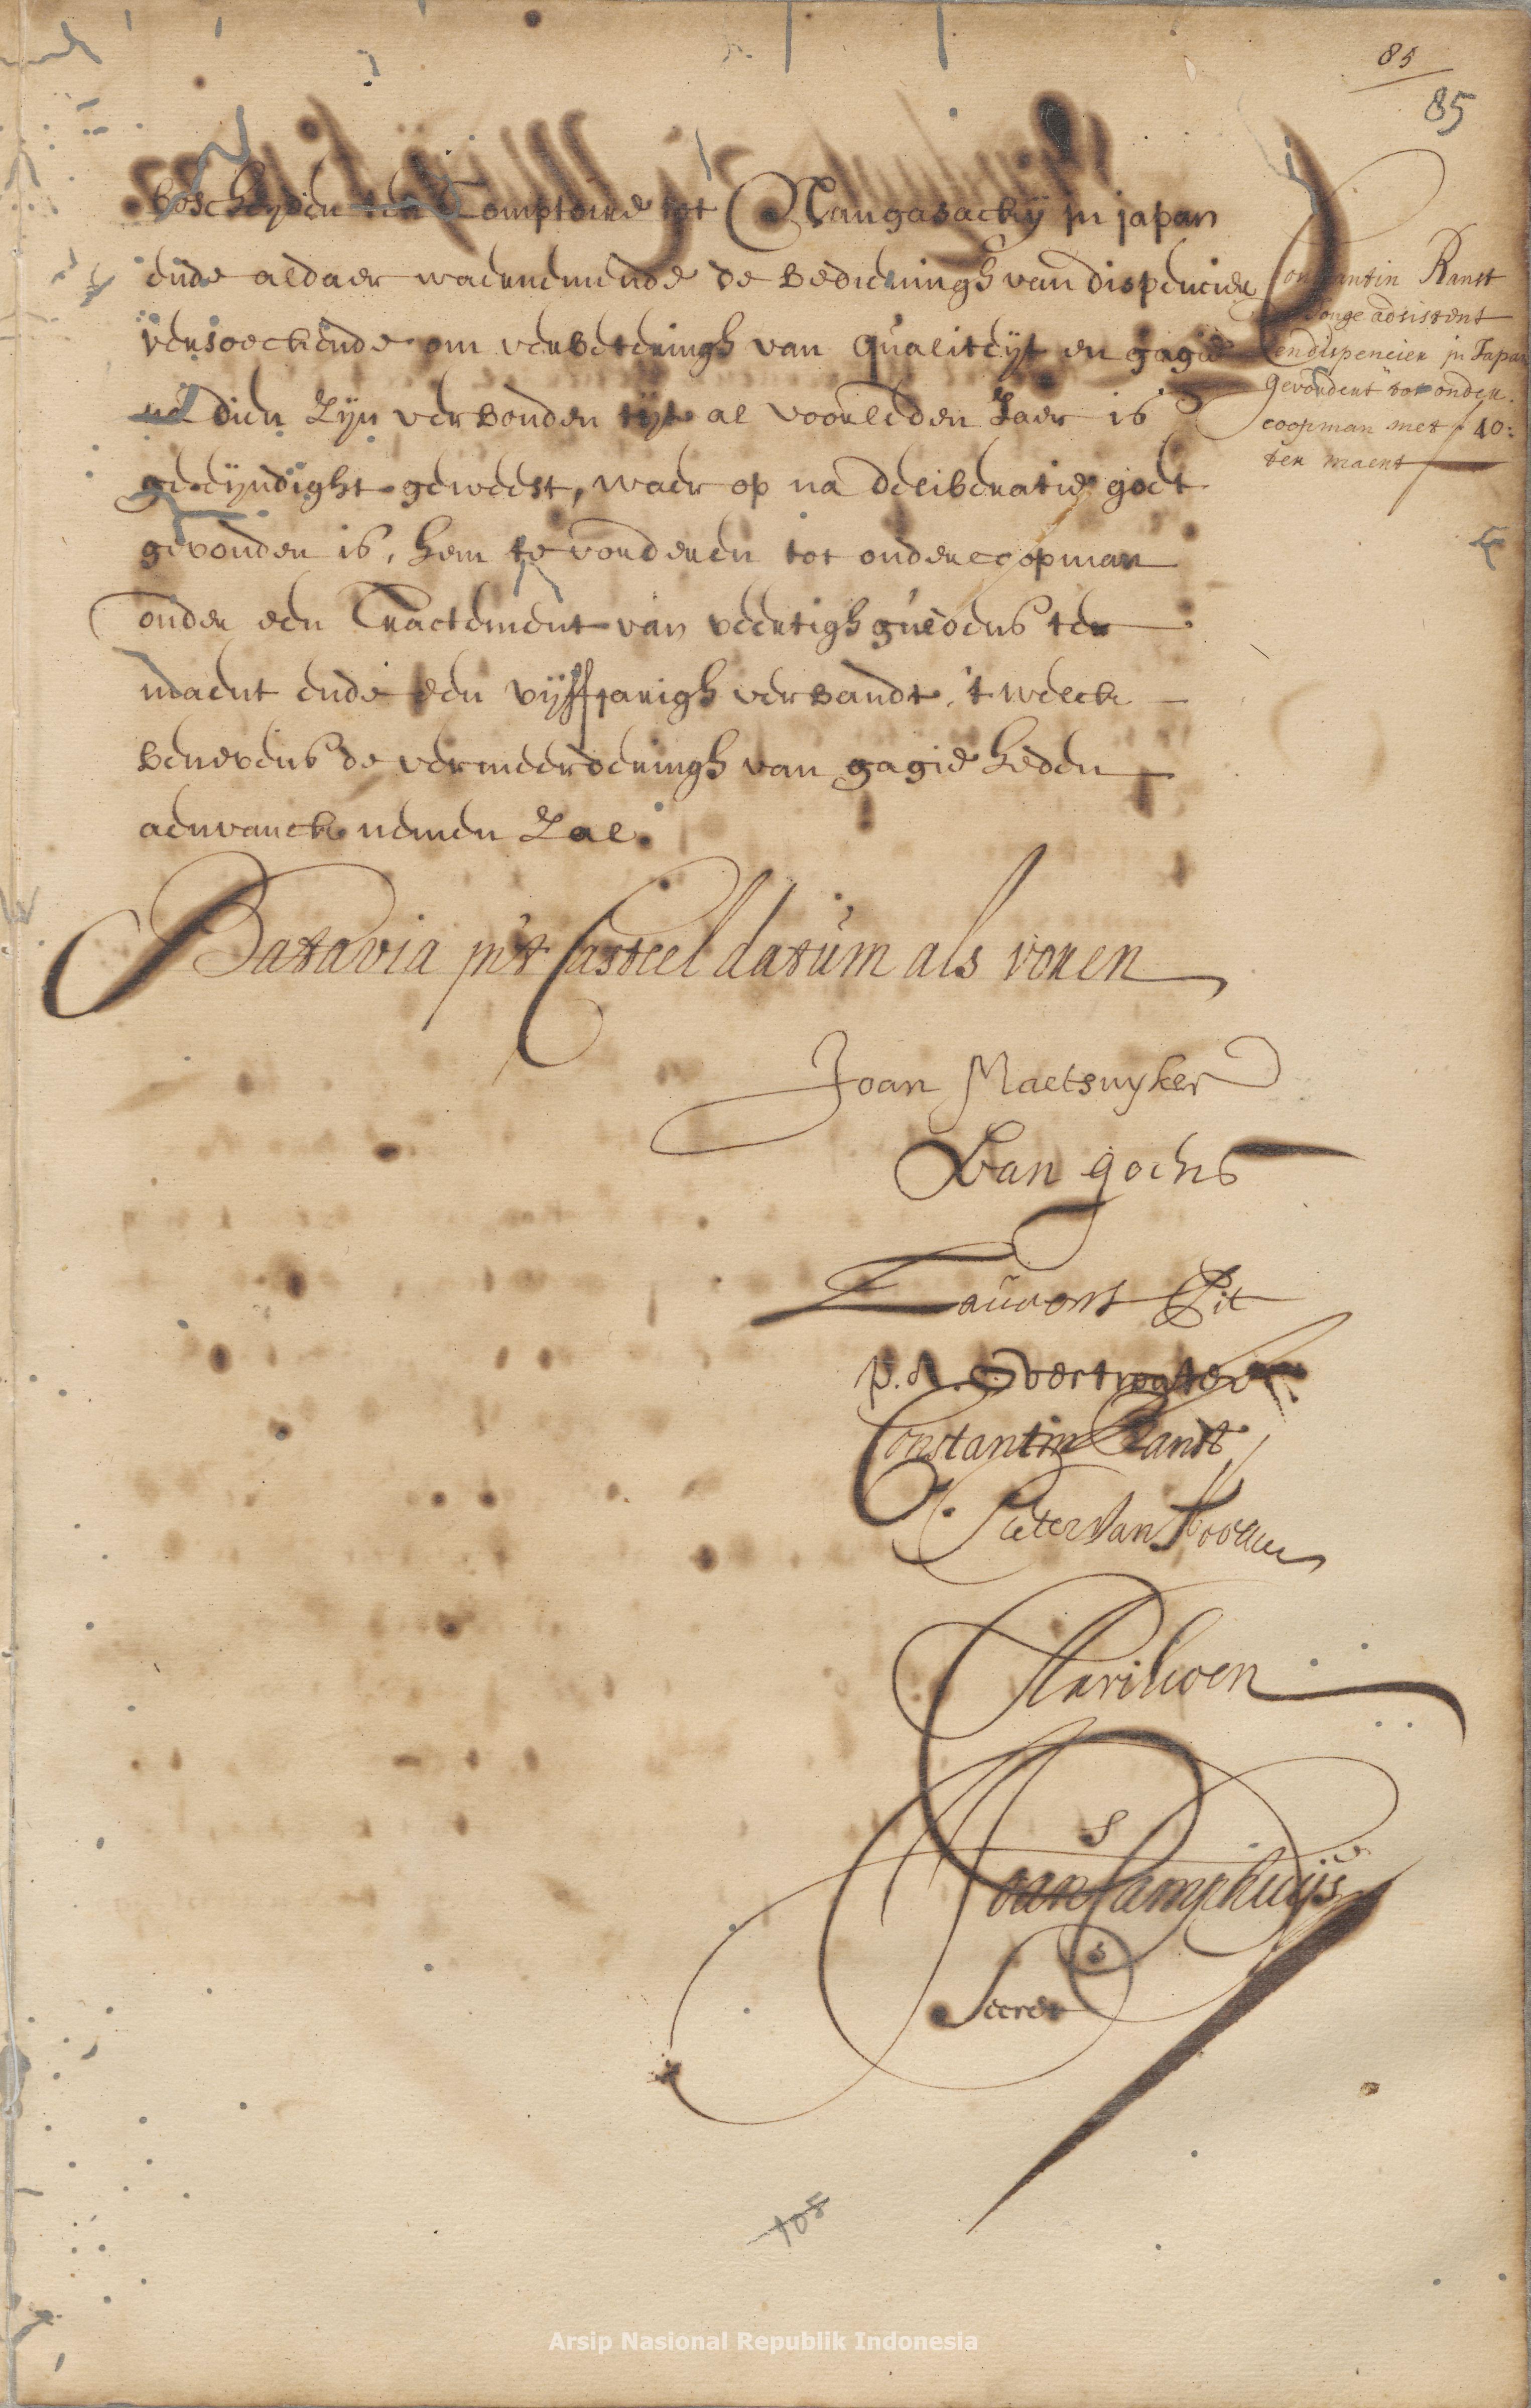 85
85
bescheyden ten Comptoire tot Nangasacky in japan
ende aldaer waernemende de bedieningh van dispencier
versoeckende om verbeteringh van qualiteyt en gagie
na dien zijn verbonden tijt al voorleden Jaer is
geeyndight geweest, waer op na deliberatie goet
gevonden is, hem te vorderen tot ondercoopman
onder een Tractement van veertigh guldens ter
maent ende een vijffjarigh verbandt, 't welck
benevens de vermeerderingh van gagie heden
aenvanck nemen zal.
Constantin Ranst
Jonge adsistent
en dispencier in Japan
gevordert tot onder
coopman met f 40:
ter maent
Batavia in't Casteel datum als voren
Joan Maetsuyker
Van goens
Laurens Pit
p. A. Overtwater
Constantin Ranst
Pieter Van Hoorn
Joan Camphuijs
Secret
108
Arsip Nasional Republik Indonesia